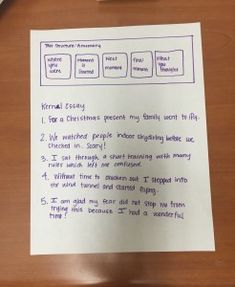 Text Structure: Amusement
Where you were
Moment it started
Next moment
Final moment
What you thought
Kernel Essay
1. For a Christmas present my family went to ifly.
2. We watched people indoor skydiving before we
checked in. Scary!
3. I sat through a short training with many
rules which left me confused.
4. Without time to chicken out I stepped into
the wind tunnel and started flying.
5. I am glad my fear did not stop me from
trying this because I had a wonderful
time!